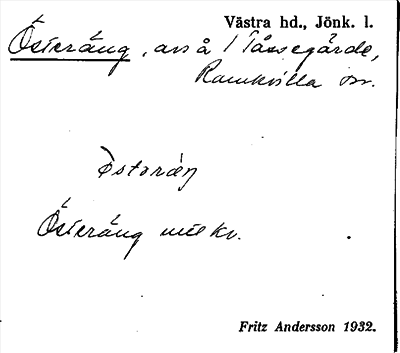 Västra hd., Jönk. l.
Österäng, avs å 1 Tåssegårde,
Ramkvilla sn.
Österäng utt kv.
Fritz Andersson 1932.